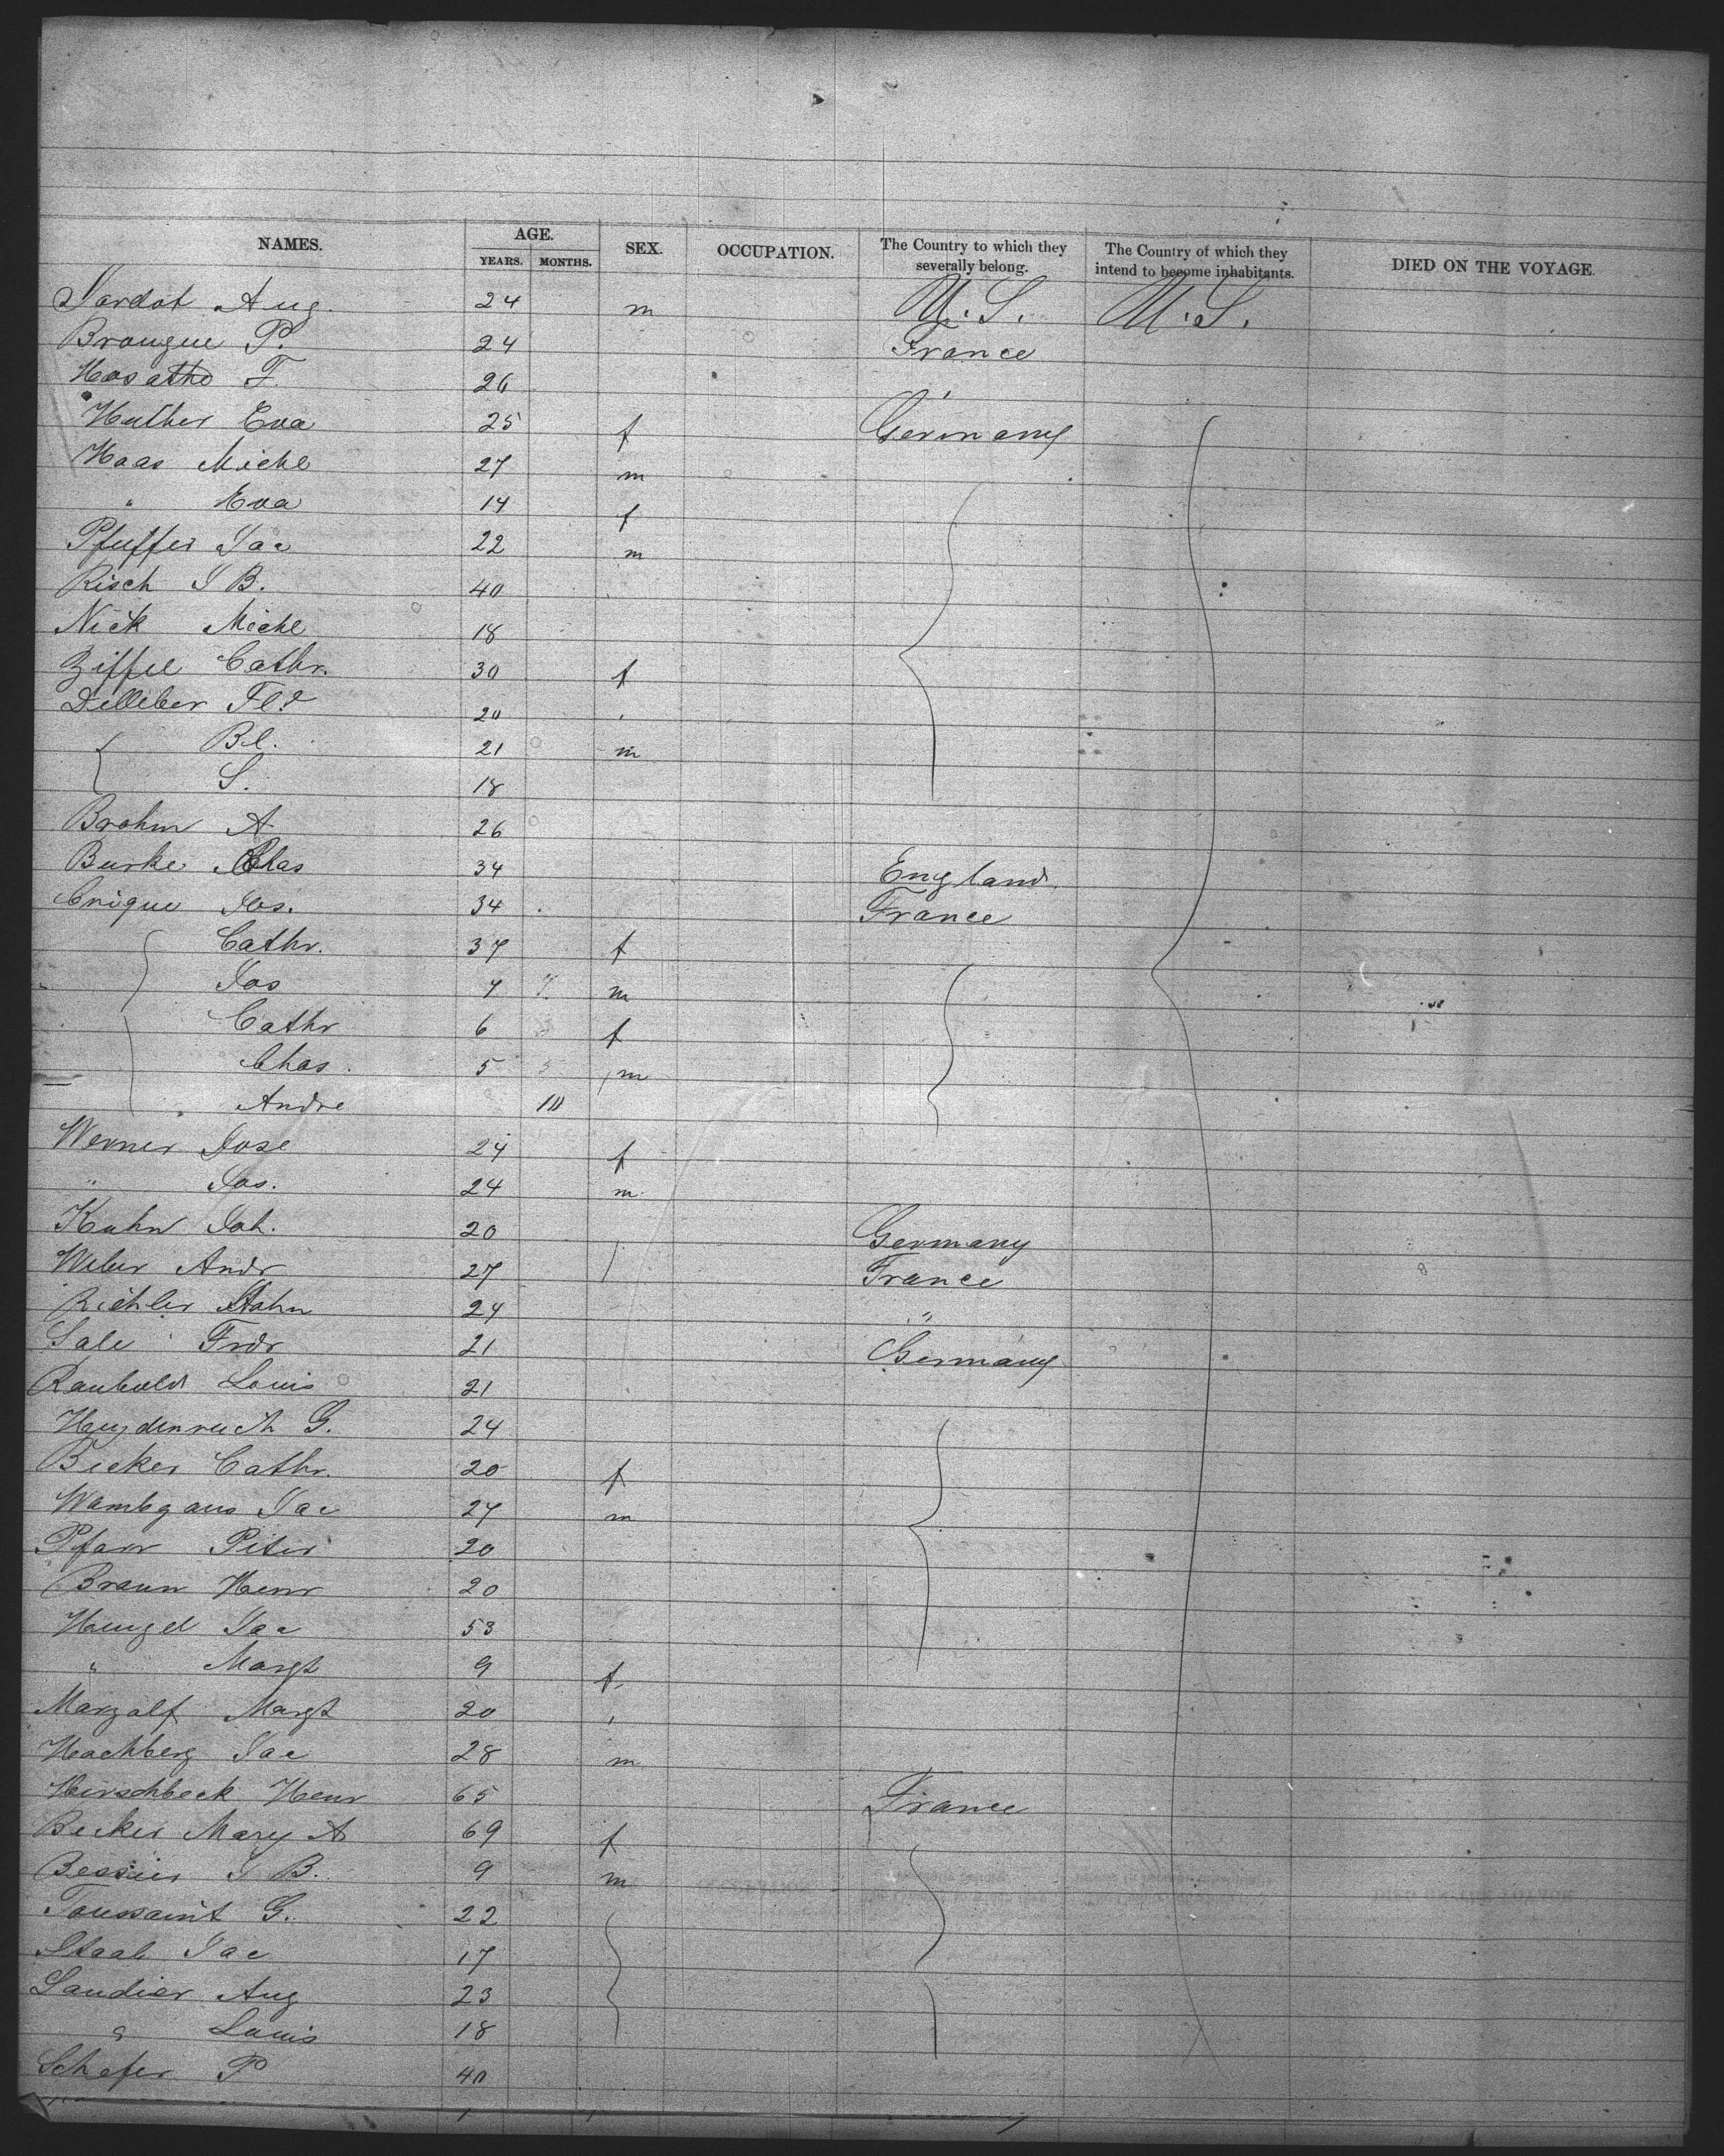 NAMES. AGE. YEARS. MONTHS. SEX. OCCUPATION. The Country to which they severally belong. The Country of which they intend to become inhabitants. DIED ON THE VOYAGE.
Jardot Aug. 24 m U.S. U.S.
Brougue P. 24 France
F. 26
Huther Eva 25 f Germany
Haas Michl 27 m
" Eva 14 f
Pfuffer Jac 22 m
Risch J B. 40
Nick Michl 18
Ziffel Cathr. 30 f
Dilleber 20
Bl. 21 m
S. 18
Brohm A 26
Burke Chas 34 England
Crique Jos. 34 France
Cathr. 37 f
Jos 7 m
Cathr 6 f
Chas. 5 m
Andre 10
Werner Jose 24 f
" Jos. 24 m
Kuhn Joh. 20 Germany
Weber Andr 27 France
Richler John 24 "
Sale Frdr 21 Germany
Raubold Louis 21
Heydenreich G. 24
Becker Cathr. 20 f
Wambgans Jac 27 m
Pfarr Peter 20
Braun Henr 20
Hengel Jac 53
" Margt 9 f
Marzolf Margt 20
Hachberg Jac 28 m
Hirschbeck Henr 65 France
Becker Mary A 69 f
Bessier J B. 9 m
Toussaint G. 22
Staab Jac 17
Sandier Aug 23
" Louis 18
Schefer P 40